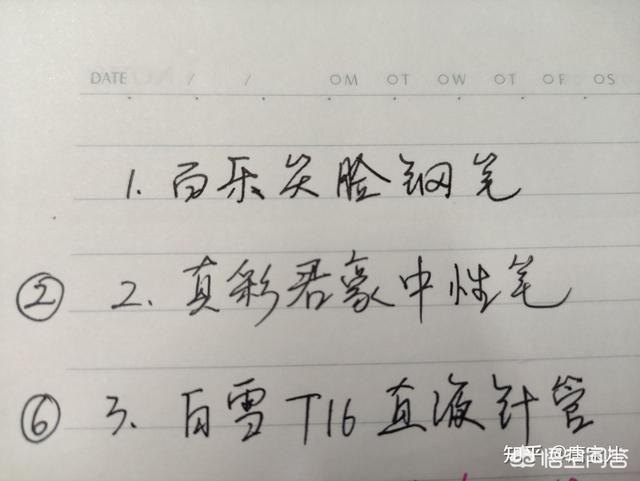 DATE / / OM OT OW OT OF OS
1. 百乐笑脸钢笔
② 2. 真彩君豪中性笔
⑥ 3. 白雪T16直液针管
知乎
悟空问答